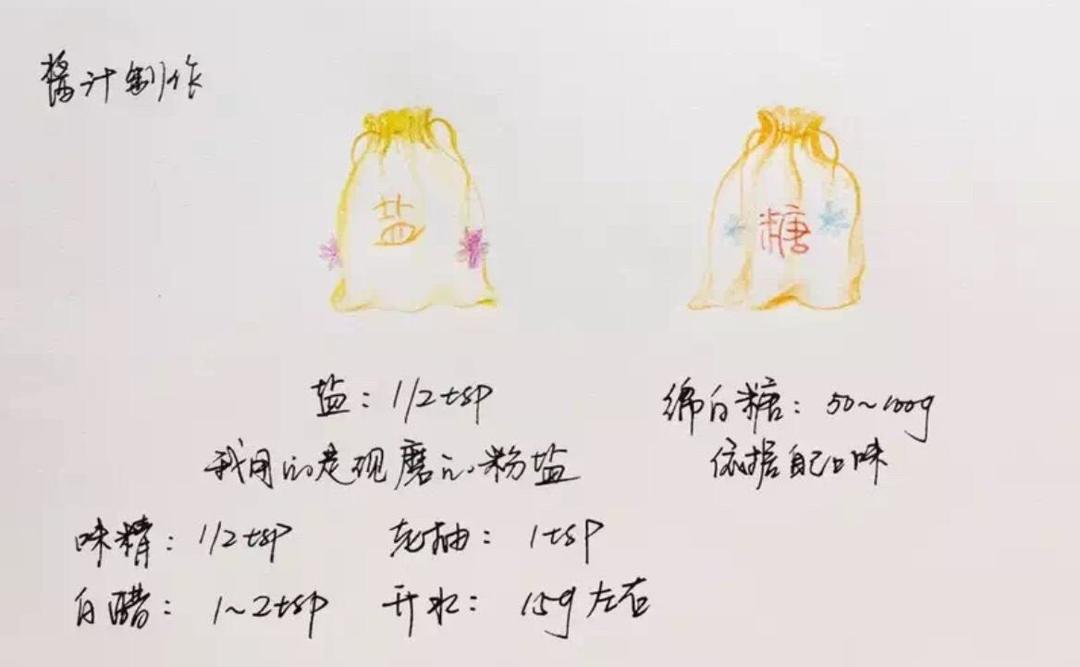 酱汁制作
盐 糖
盐：1/2tsp 绵白糖：50~100g
我用的是现磨的粉盐 依据自己口味
味精：1/2tsp 老抽：1tsp
白醋：1~2tsp 开水：15g左右